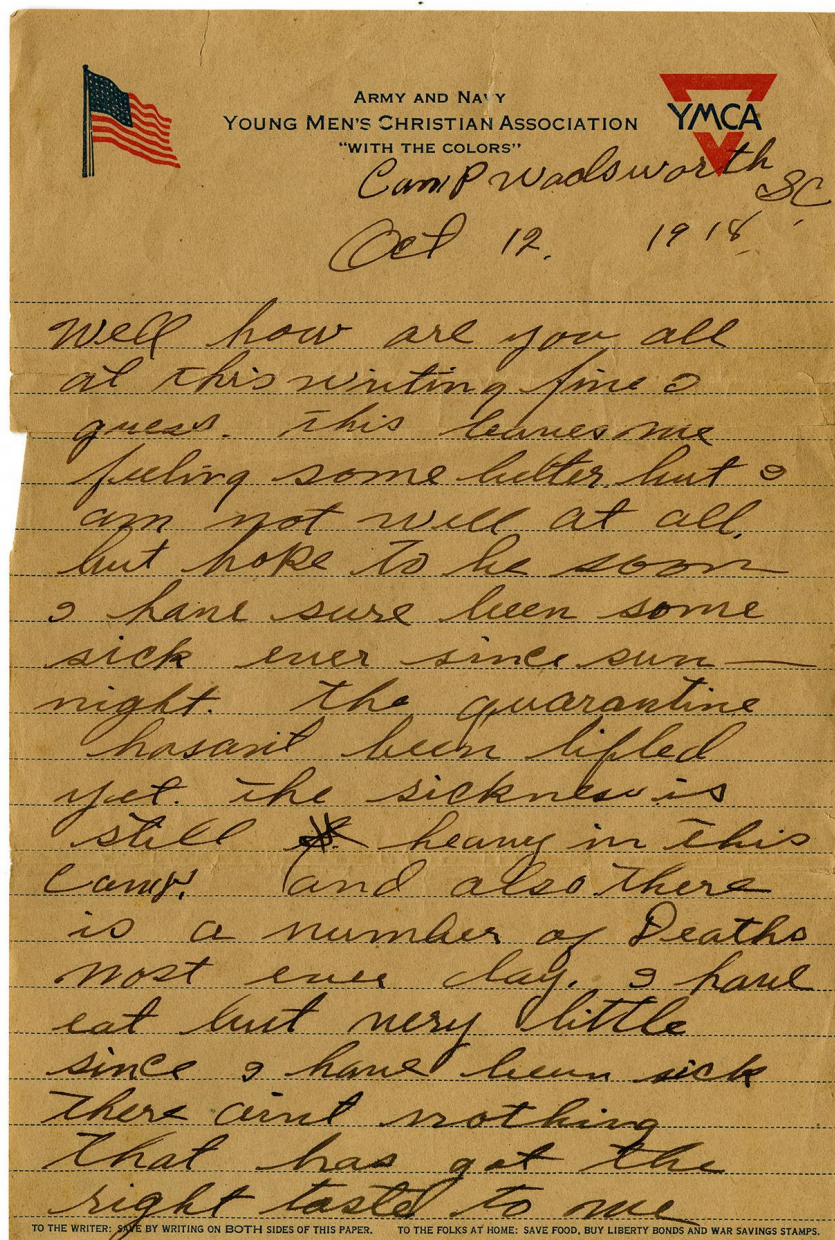 ARMY AND NAVY
YOUNG MEN'S CHRISTIAN ASSOCIATION
"WITH THE COLORS"
YMCA
Camp Wadsworth SC
Oct 12. 1918
Well how are you all
at this writing fine I
guess. This leaves me
feeling some better but I
am not well at all,
but hope to be soon
I have sure been some
sick ever since sun—
night. The quarantine
hasant been lifted
yet. The sickness is
still heavy in this
Camp. and also there
is a number of Deaths
most ever day. I have
eat but very little
since I have been sick
there aint nothing
that has got the
right taste to me
TO THE WRITER: SAVE BY WRITING ON BOTH SIDES OF THIS PAPER. TO THE FOLKS AT HOME: SAVE FOOD, BUY LIBERTY BONDS AND WAR SAVINGS STAMPS.